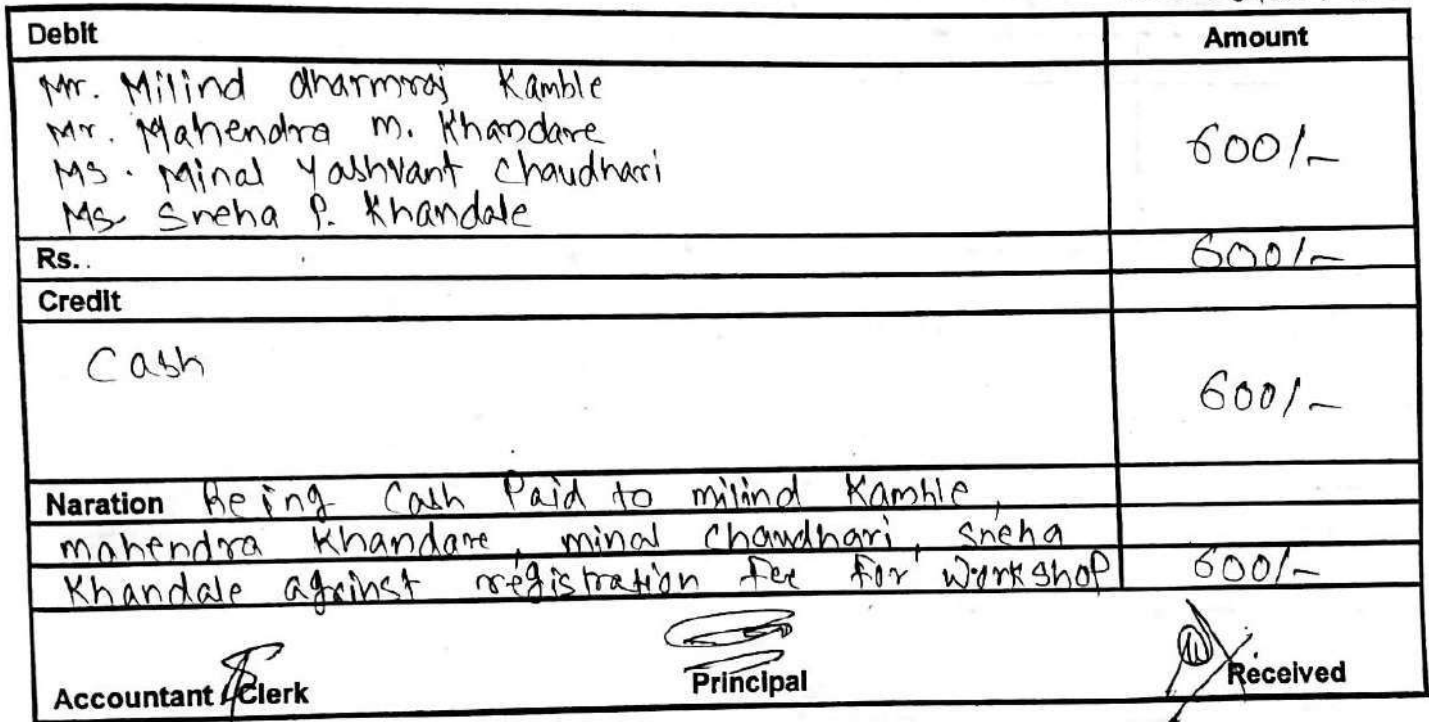 Debit Amount
Mr. Milind dharmraj Kamble
Mr. Mahendra M. Khandare
Ms. Minal Yashvant Chaudhari
Ms. Sneha P. Khandale
600/-
Rs.. 600/-
Credit
Cash
600/-
Naration Being Cash Paid to milind Kamble,
mahendra Khandare, minal Chaudhari, sneha
Khandale against registration fee for workshop 600/-
Accountant / Clerk Principal Received